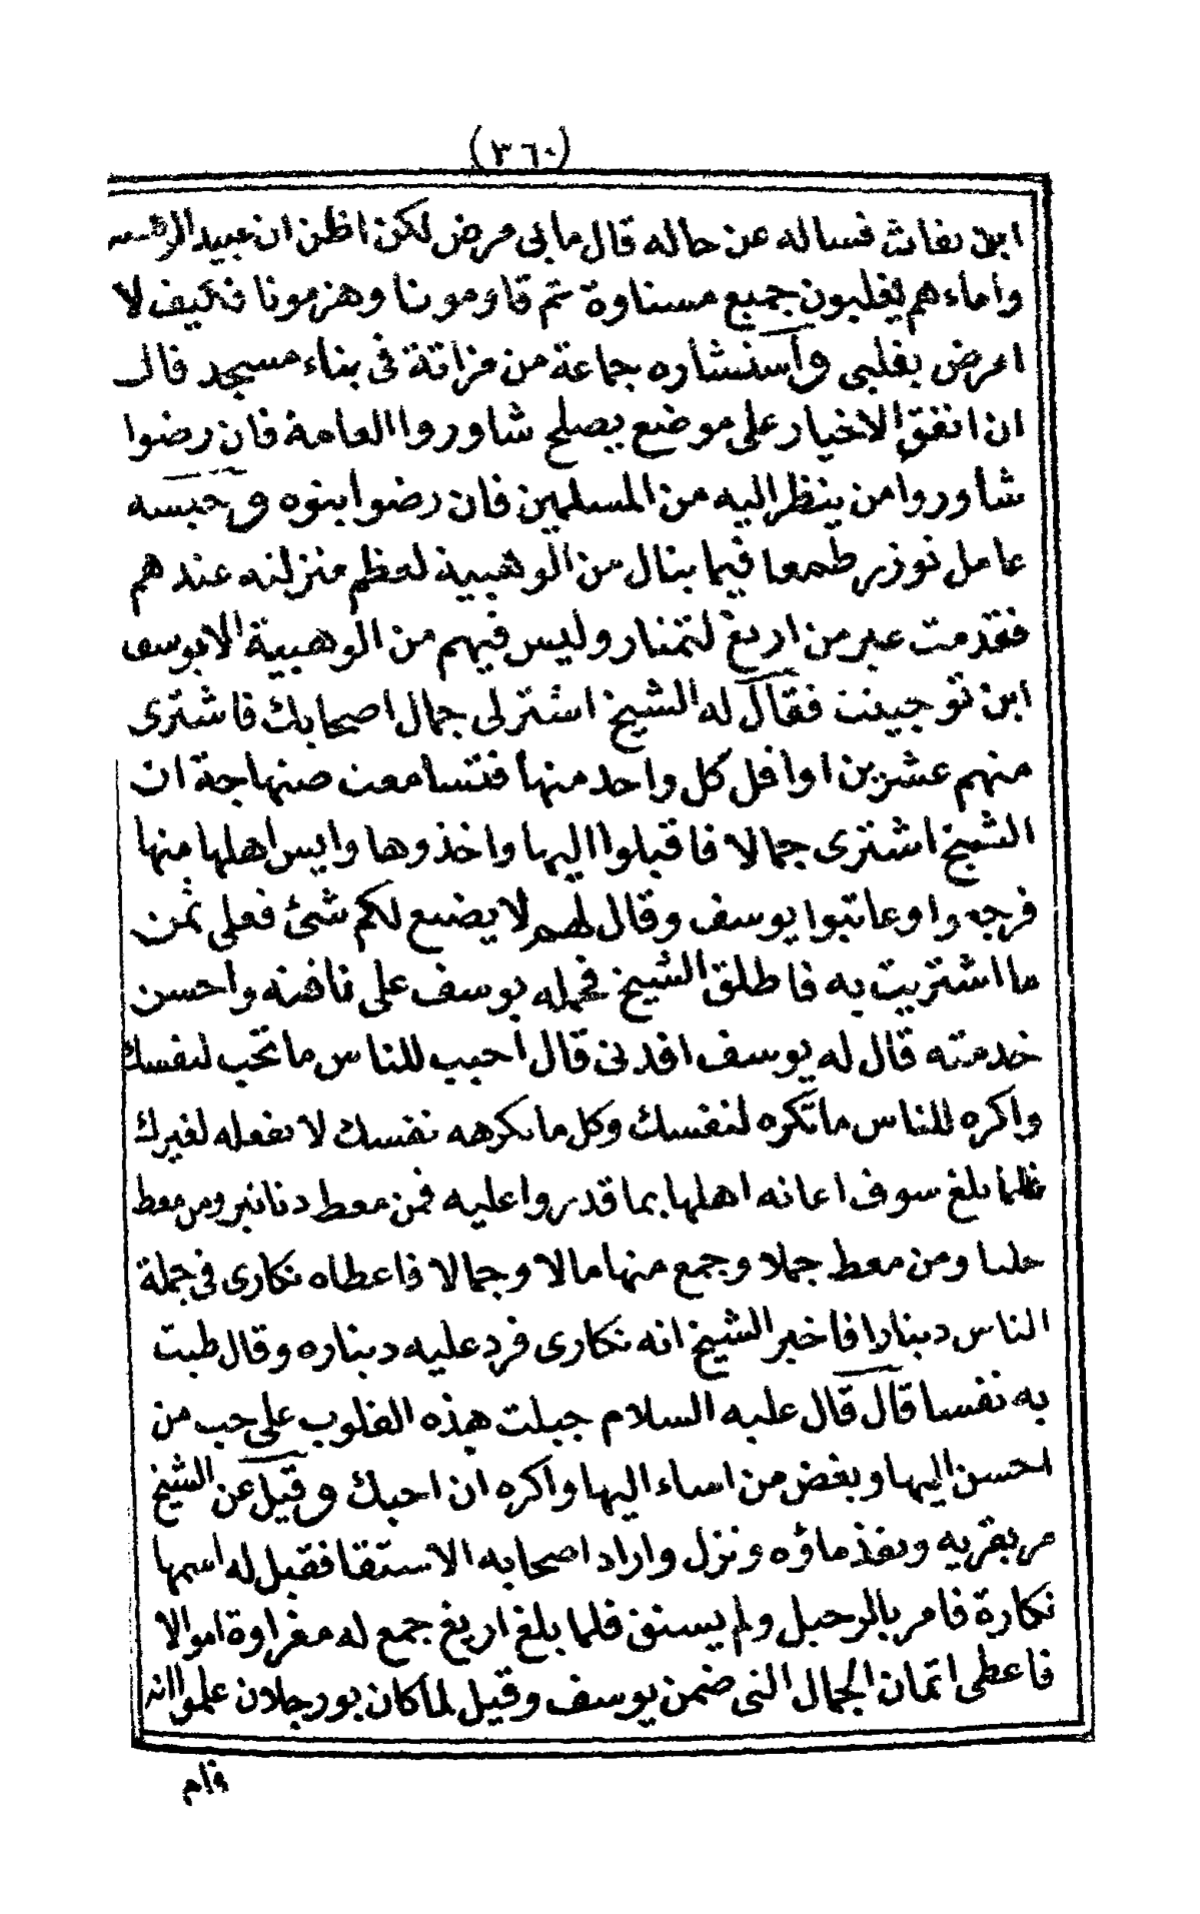 (٣٦٠)
ابن نفاث فساله عن حاله قال ما بى مرض لكن اظن ان عبيد
واماءهم يغلبون جميع مسناوة ثم قاومونا وهزمونا فكيف لا
امرض بقلبى واستشاره جماعة من مزاتة فى بناء مسجد قال
ان اتفق الاخيار على موضع يصلح شاوروا العامة فان رضوا
شاوروا من ينظر اليه من المسلمين فان رضوا بنوه وحبسه
عامل توزر طمعا فيما ينال من الوهبية لعظم منزلته عندهم
فقدمت عير من اريغ لتمنار وليس فيهم من الوهبية الا يوسف
ابن توجينت فقال له الشيخ اشتر لى جمال اصحابك فاشترى
منهم عشرين اوافل كل واحد منها فتسامعت صنهاجة ان
الشيخ اشترى جمالا فاقبلوا اليها واخذوها وايس اهلها منها
فرجعوا وعاتبوا يوسف وقال لهم لا يضيع لكم شئ فعلى ثمن
ما اشتريت به فاطلق الشيخ فحمله يوسف على ناقته واحسن
خدمته قال له يوسف افدنى قال احبب للناس ما تحب لنفسك
واكره للناس ما تكره لنفسك وكل ما تكرهه نفسك لا تفعله لغيرك
فلما بلغ سوف اعانه اهلها بما قدروا عليه فمن معط دنانير ومن معط
حليا ومن معط جملا وجمع منها مالا وجمالا فاعطاه نكارى فى جملة
الناس دينارا فاخبر الشيخ انه نكارى فرد عليه ديناره وقال طبت
به نفسا قال قال عليه السلام جبلت هذه القلوب على حب من
احسن اليها وبغض من اساء اليها واكره ان احبك وقيل عن الشيخ
مر بقرية ونفذ ماؤه ونزل واراد اصحابه الاستقا فقيل له اسمها
نكارة فامر بالرحيل ولم يستق فلما بلغ اريغ جمع له مغراوة اموالا
فاعطى اثمان الجمال التى ضمن يوسف وقيل لما كان بورجلان علموا انه
قام